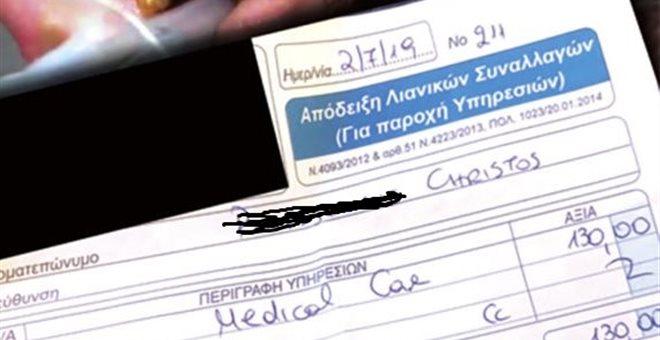 Ημερ/νία 2/7/19 No 211
Απόδειξη Λιανικών Συναλλαγών
(Για παροχή Υπηρεσιών)
Ν.4093/2012 & αρθ.51 Ν.4223/2013, ΠΟΛ. 1023/20.01.2014
CHRISTOS
οματεπώνυμο
εύθυνση
ΠΕΡΙΓΡΑΦΗ ΥΠΗΡΕΣΙΩΝ ΑΞΙΑ
Α/Α Medical Care 130,00
CC
130,00